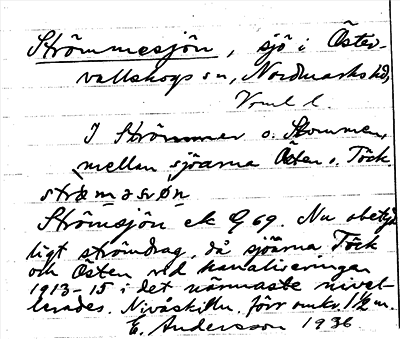 Strömmesjön, sjö i Öster-
vallskogs sn, Nordmarks hd,
Vrml l.
I Strömmer o. Stommen,
mellan sjöarna Östen o. Töck.
Strömsjön ek G 69. Nu obetyd
ligt strömdrag, då sjöarna Töck
och Östen vid kanaliseringen
1913-15 i det närmaste nivel-
lerades. Nivåskilln. förr omkr. 1½ m.
E. Andersson 1936